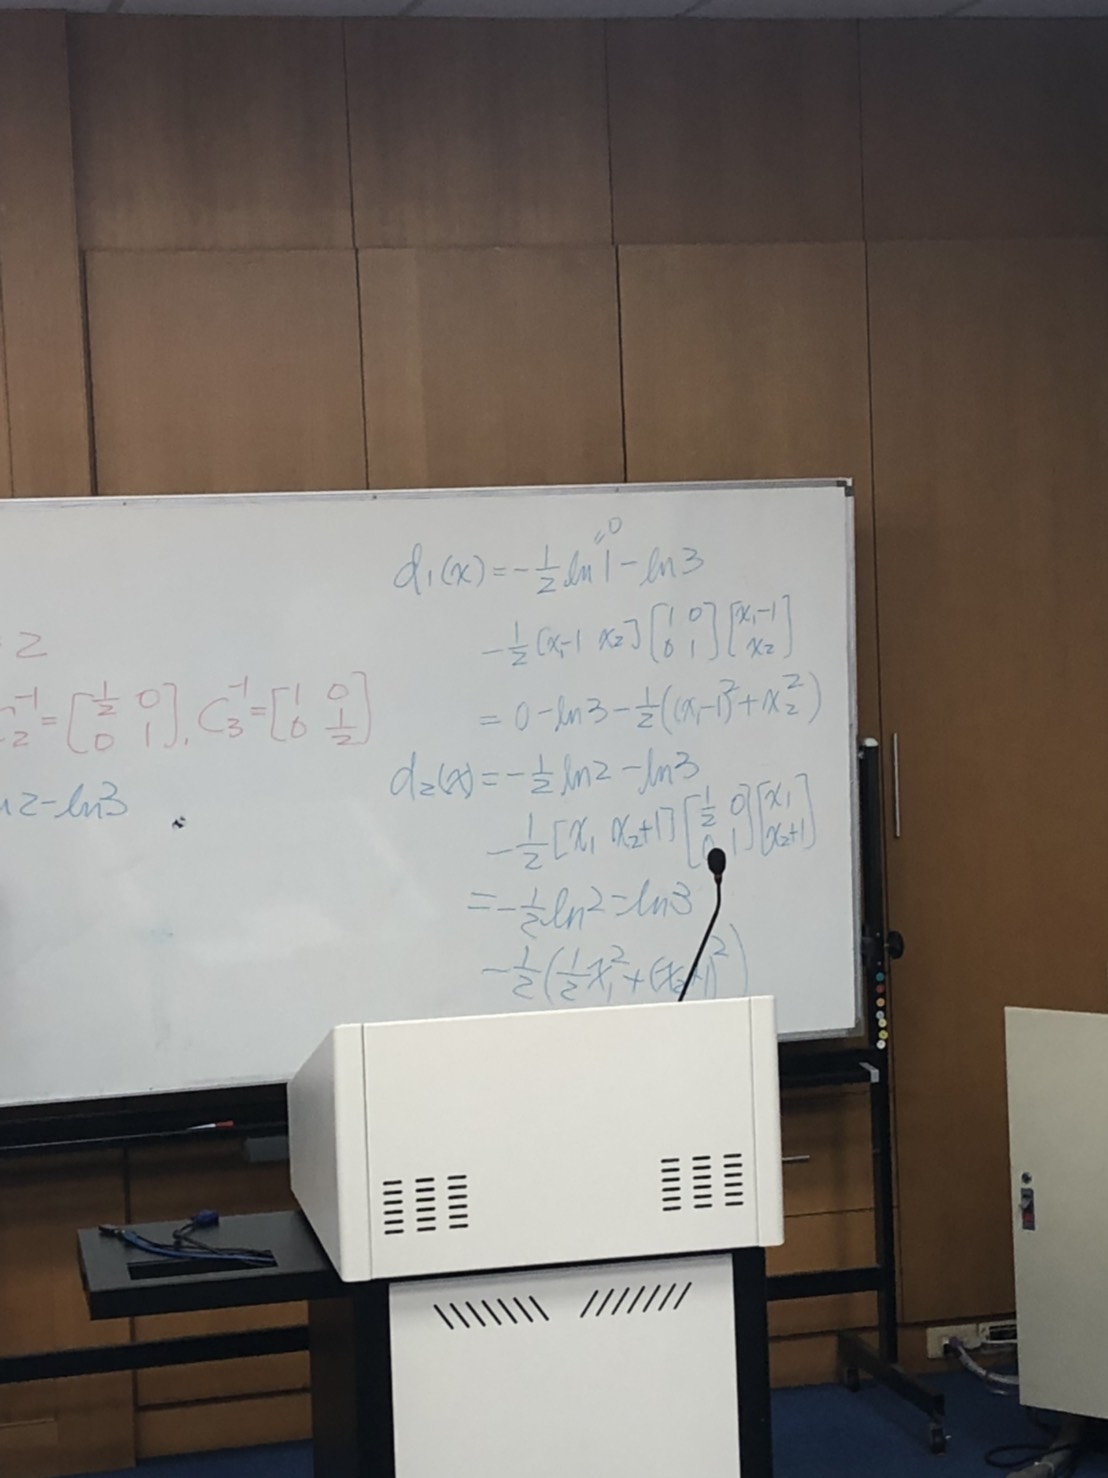 2
C₂⁻¹=[½ 0; 0 1], C₃⁻¹=[1 0; 0 ½]
2-ln3
d₁(x)=-½ln1-ln3
=0
-½[x₁-1 x₂][1 0; 0 1][x₁-1; x₂]
=0-ln3-½((x₁-1)²+x₂²)
d₂(x)=-½ln2-ln3
-½[x₁ x₂+1][½ 0; 0 1][x₁; x₂+1]
=-½ln2-ln3
-½(½x₁²+(x₂+1)²)